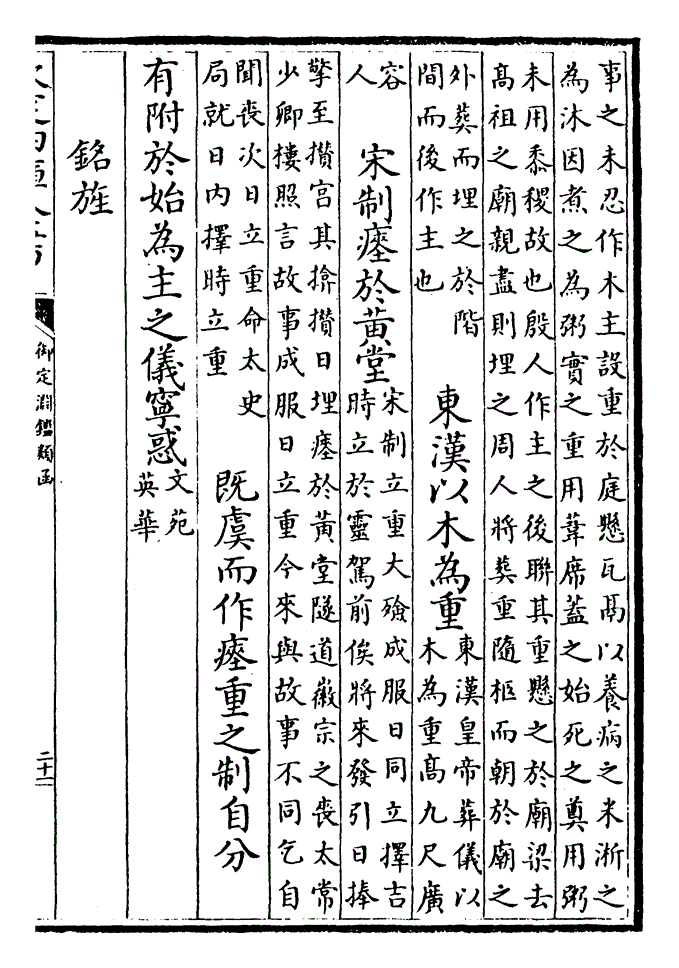 事之未忍作木主設重於庭懸瓦鬲以養病之米淅之
為沐因煮之為粥實之重用葦席蓋之始死之奠用粥
未用黍稷故也殷人作主之後聯其重懸之於廟梁去
髙祖之廟親盡則埋之周人將葬重隨柩而朝於廟之
外葬而埋之於階
間而後作主也
東漢以木為重
東漢皇帝葬儀以
木為重髙九尺廣
容
人
宋制瘞於黃堂
宋制立重大殮成服日同立擇吉
時立於靈駕前俟將來發引日捧
擎至攢宫其揜攢日埋瘞於黃堂隧道徽宗之喪太常
少卿樓照言故事成服日立重今來與故事不同乞自
聞喪次日立重命太史
局就日内擇時立重
既虞而作瘞重之制自分
有附於始為主之儀寧惑
文苑
英華
銘旌
御定淵鑑類函